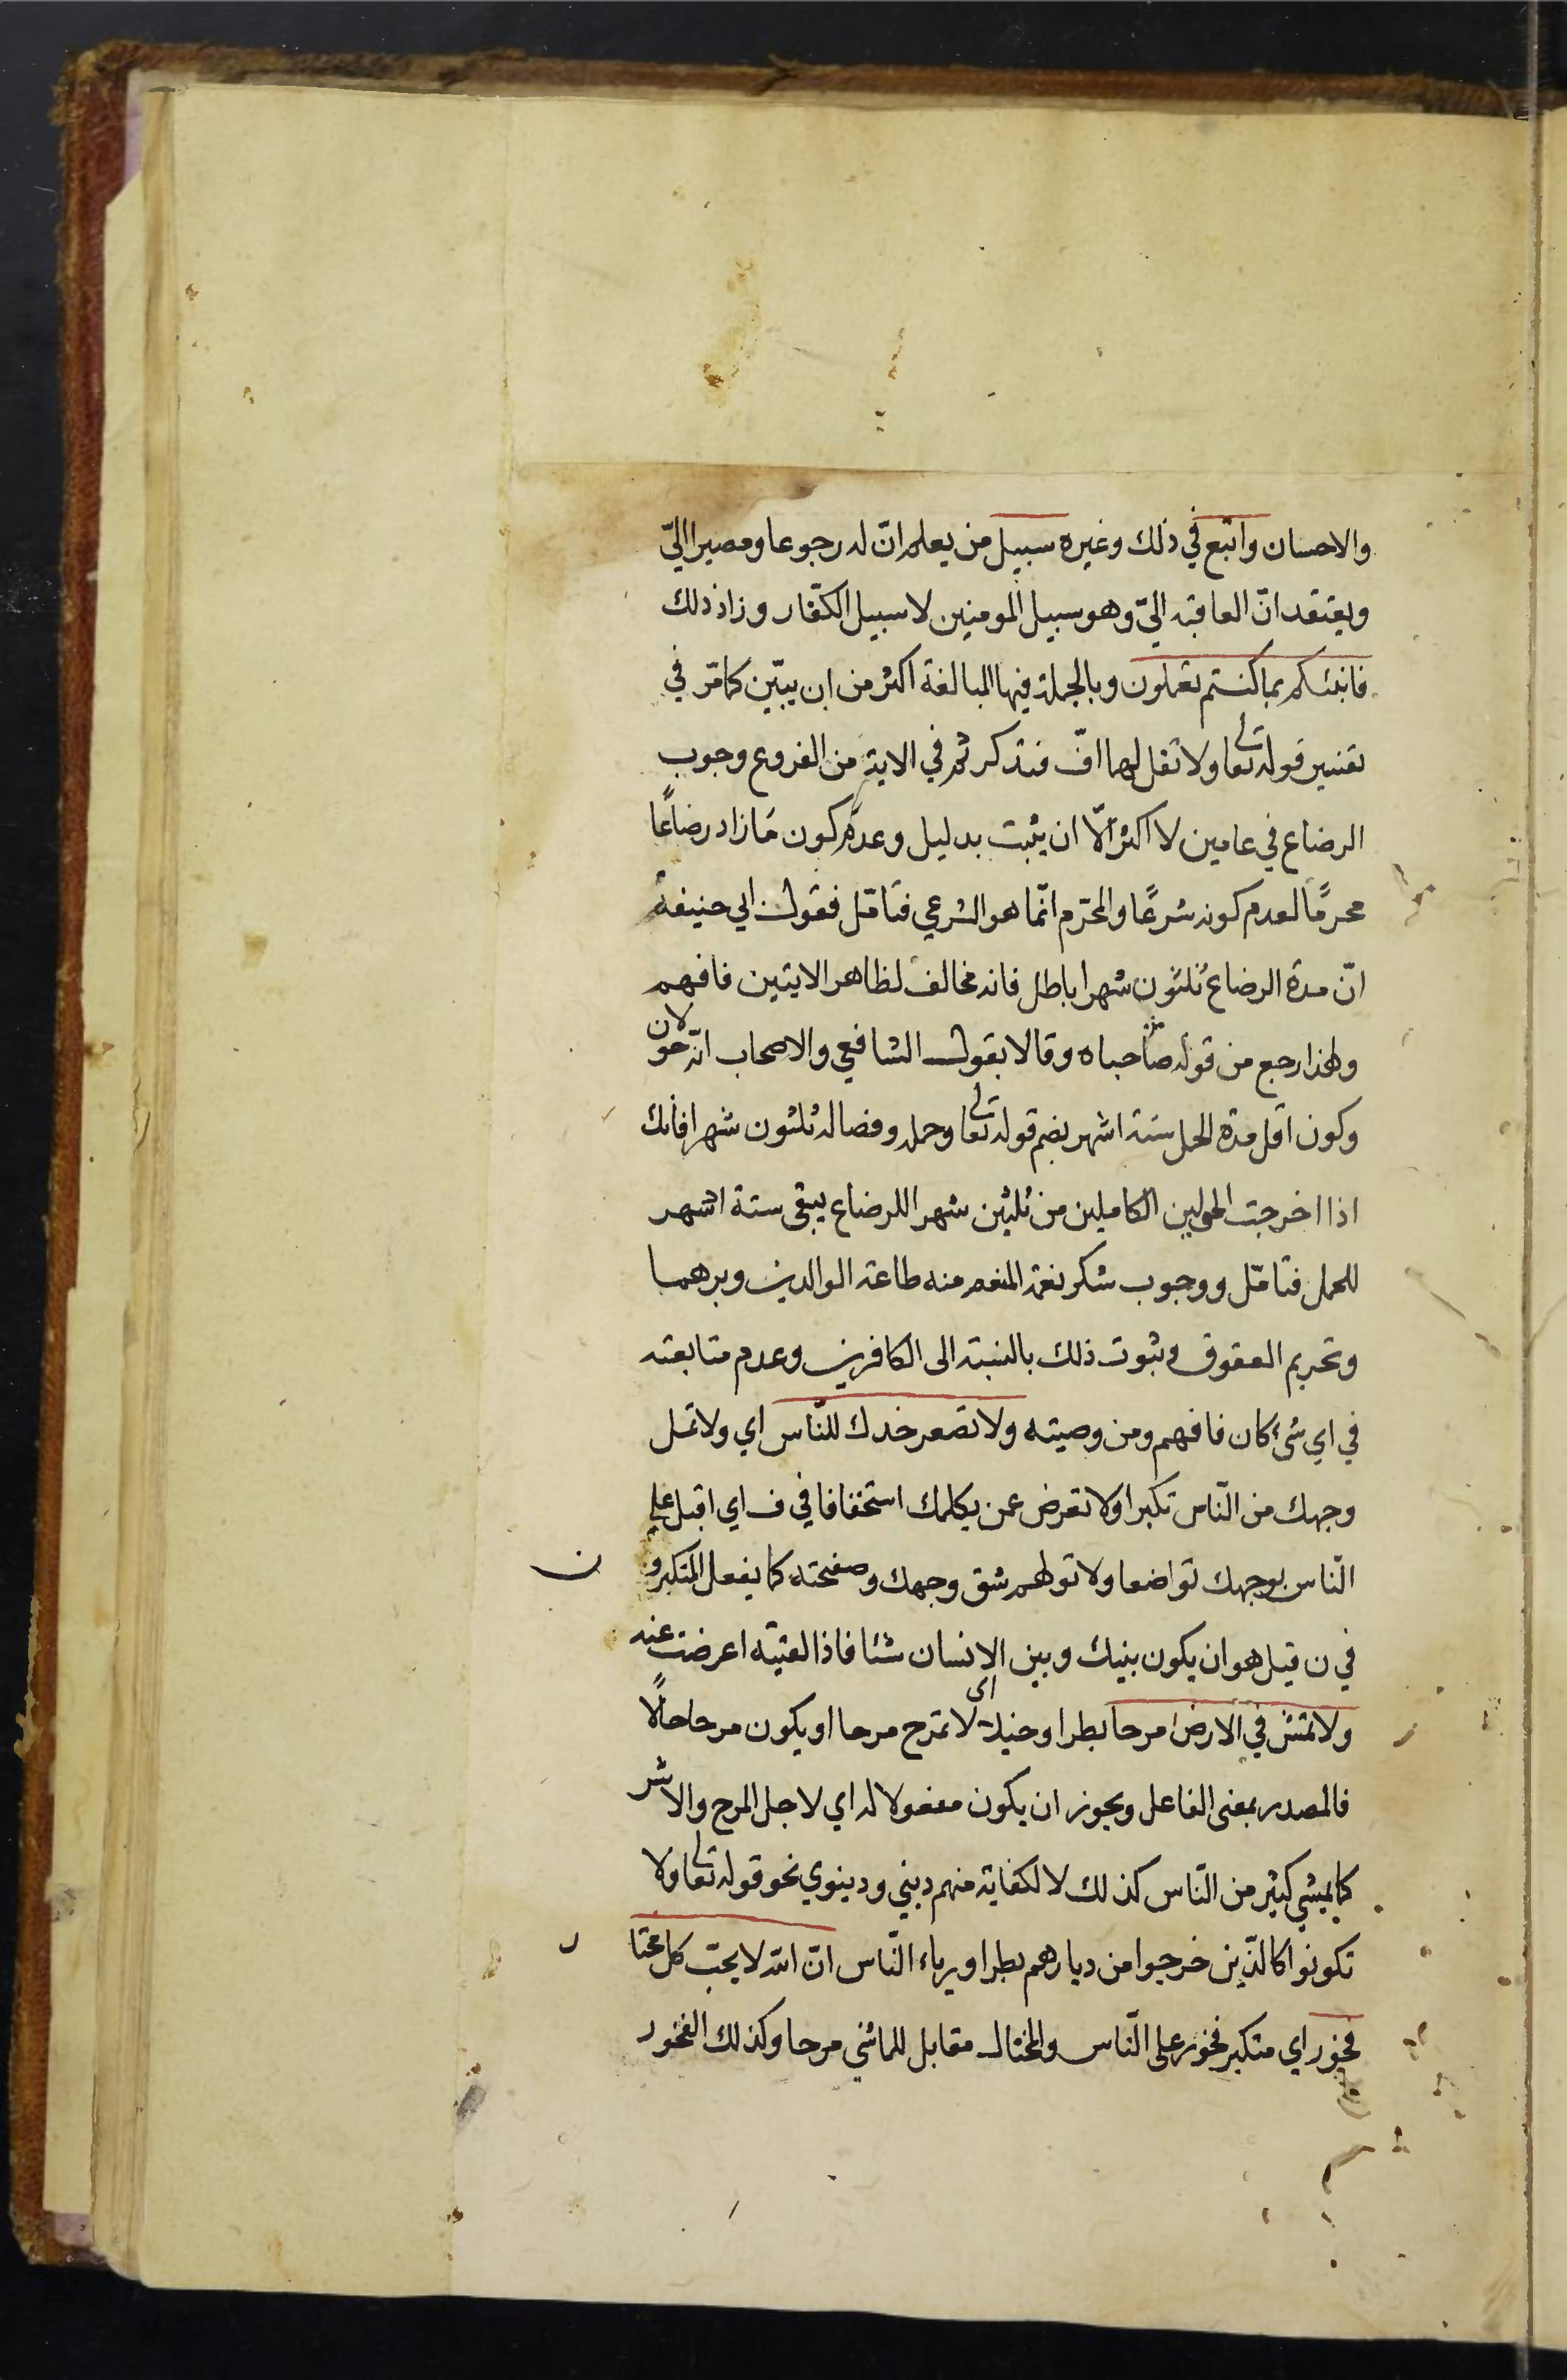 والاحسان واتبع في ذلك وغيره سبيل من يعلم انّ له رجوعا ومصيرا اليّ
ويعتقد انّ العاقبة اليّ وهو سبيل المومنين لا سبيل الكفّار وزاد ذلك
فانبئكم بما كنتم تعملون وبالجملة فيها المبالغة اكثر من ان يبيّن كما مّر في
تفسير قوله تعالى ولا تقل لهما افّ فتذكر ثم في الاية من الفروع وجوب
الرضاع في عامين لا اكثر الّا ان يثبت بدليل وعدم كون مَا زاد رضاعًا
محرمًا لعدم كونه شرعًا والمحّرم انّما هو الشرعي فتامّل فقول ابي حنيفة
انّ مدة الرضاع ثلثون شهرا باطل فانه مخالف لظاهر الايتين فافهم
ولهذا رجع من قوله صاحباه وقالا بقول الشافعي والاصحاب انّه حولان
وكون اقل مدة الحمل ستة اشهر بضم قوله تعالى وحمله وفصاله ثلثون شهرا فانك
اذا اخرجت الحولين الكاملين من ثلثين شهرا للرضاع يبقى ستة اشهر
للحمل فتامّل ووجوب شكر نعمة المنعم منه طاعة الوالدين وبرهما
وتحريم العقوق وثبوت ذلك بالنسبة الى الكافرين وعدم متابعته
في اي شئ كان فافهم ومن وصيته ولا تصعر خدك للنّاس اي ولا تمل
وجهك من النّاس تكبرا ولا تعرض عمن يكلمك استخفافا في ف اي اقبل على
النّاس بوجهك تواضعا ولا تولهم شق وجهك وصفحته كما يفعل المتكبرون
في ن قيل هو ان يكون بينك وبين الانسان شئا فاذا لقيته اعرضت عنه
ولا تمش في الارض مرحا بطرا وخيلاء اى لا تمرح مرحا او يكون مرحا حالًا
فالمصدر بمعنى الفاعل ويجوز ان يكون مفعولا له اي لاجل المرح والاشر
كما يمشي كثير من النّاس كذلك لا لكفاية منهم ديني ودينوي نحو قوله تعالى ولا
تكونوا كالّذين خرجوا من ديارهم بطرا ويرياء النّاس انّ الله لا يحبّ كل مختار
فخور اي متكبر فخور على النّاس والمختال مقابل للماشي مرحا وكذلك الفخور